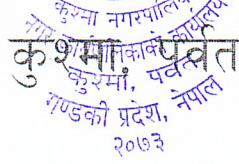 कुश्मा नगरपालिका
नगर कार्यपालिकाको कार्यालय
कुश्मा, पर्वत
कुश्मा, पर्वत
गण्डकी प्रदेश, नेपाल
२०७३